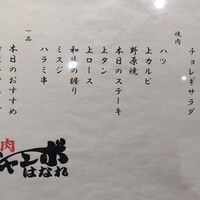 チョレギサラダ
焼肉
ハツ
上カルビ
野原焼
本日のステーキ
上タン
上ロース
和牛の握り
ミスジ
ハラミ串
一品
本日のおすすめ
肉
はなれ